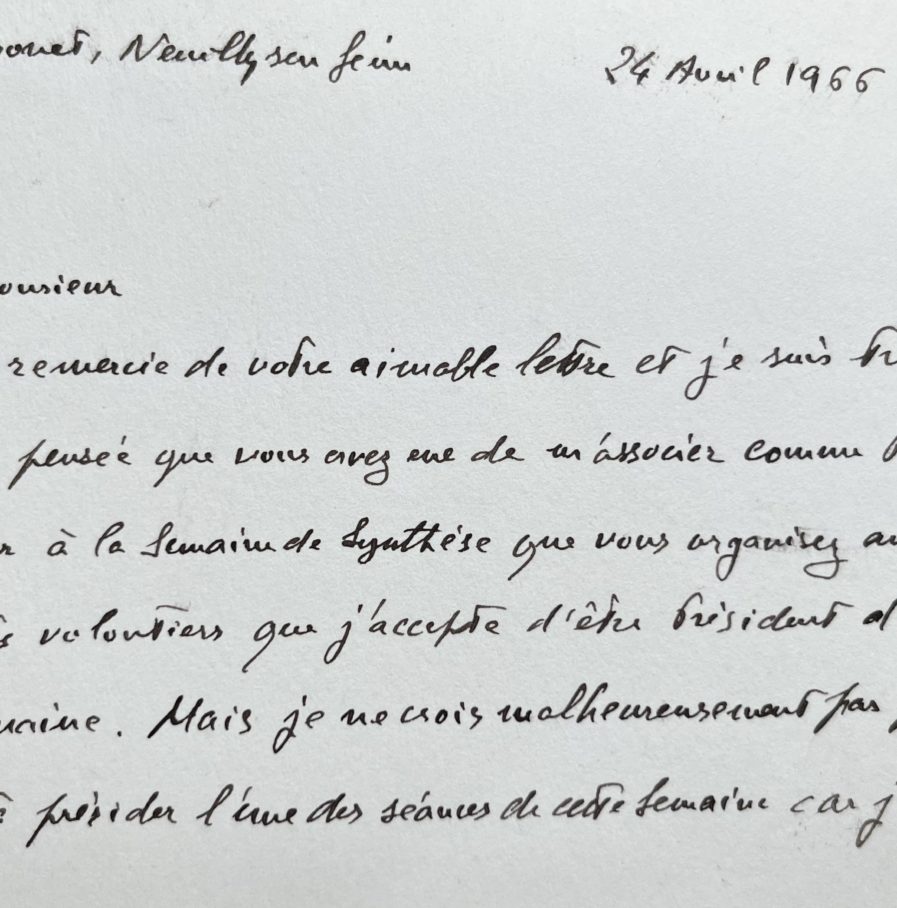 Neuilly sur Seine 24 Avril 1966
remercie de votre aimable lettre et je suis
pensée que vous avez eue de m'associer comme
à la Semaine de Synthèse que vous organisez
volontiers que j'accepte d'être Président
Mais je ne crois malheureusement pas
présider l'une des séances de cette Semaine car j'